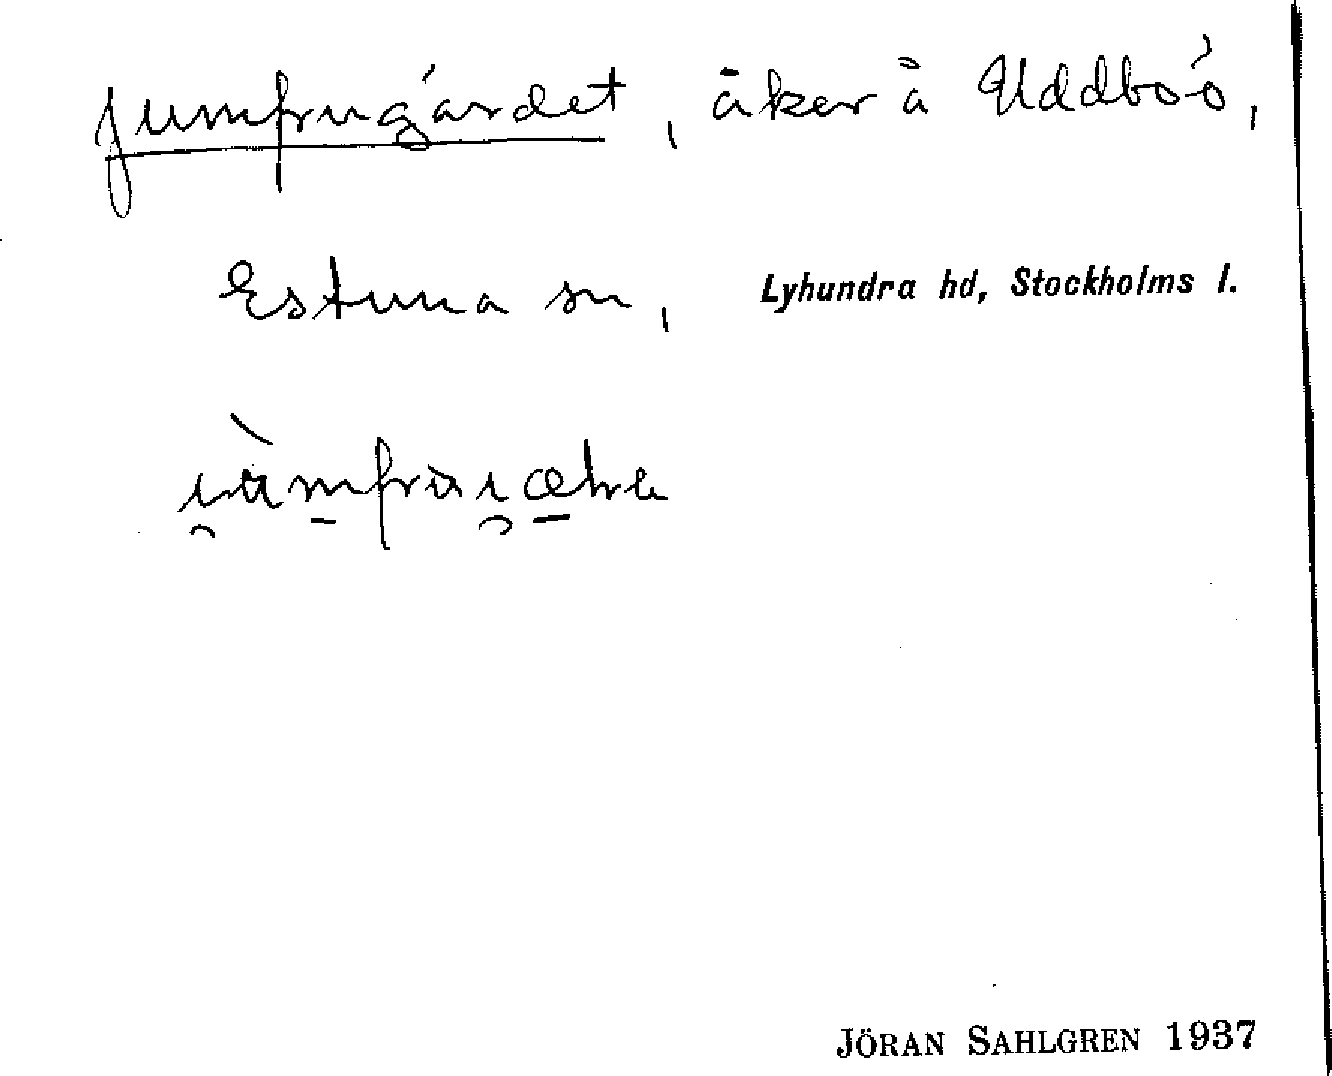 Jumfrugärdet, åker å Uddboö,
Estuna sn, Lyhundra hd, Stockholms l.
JÖRAN SAHLGREN 1937